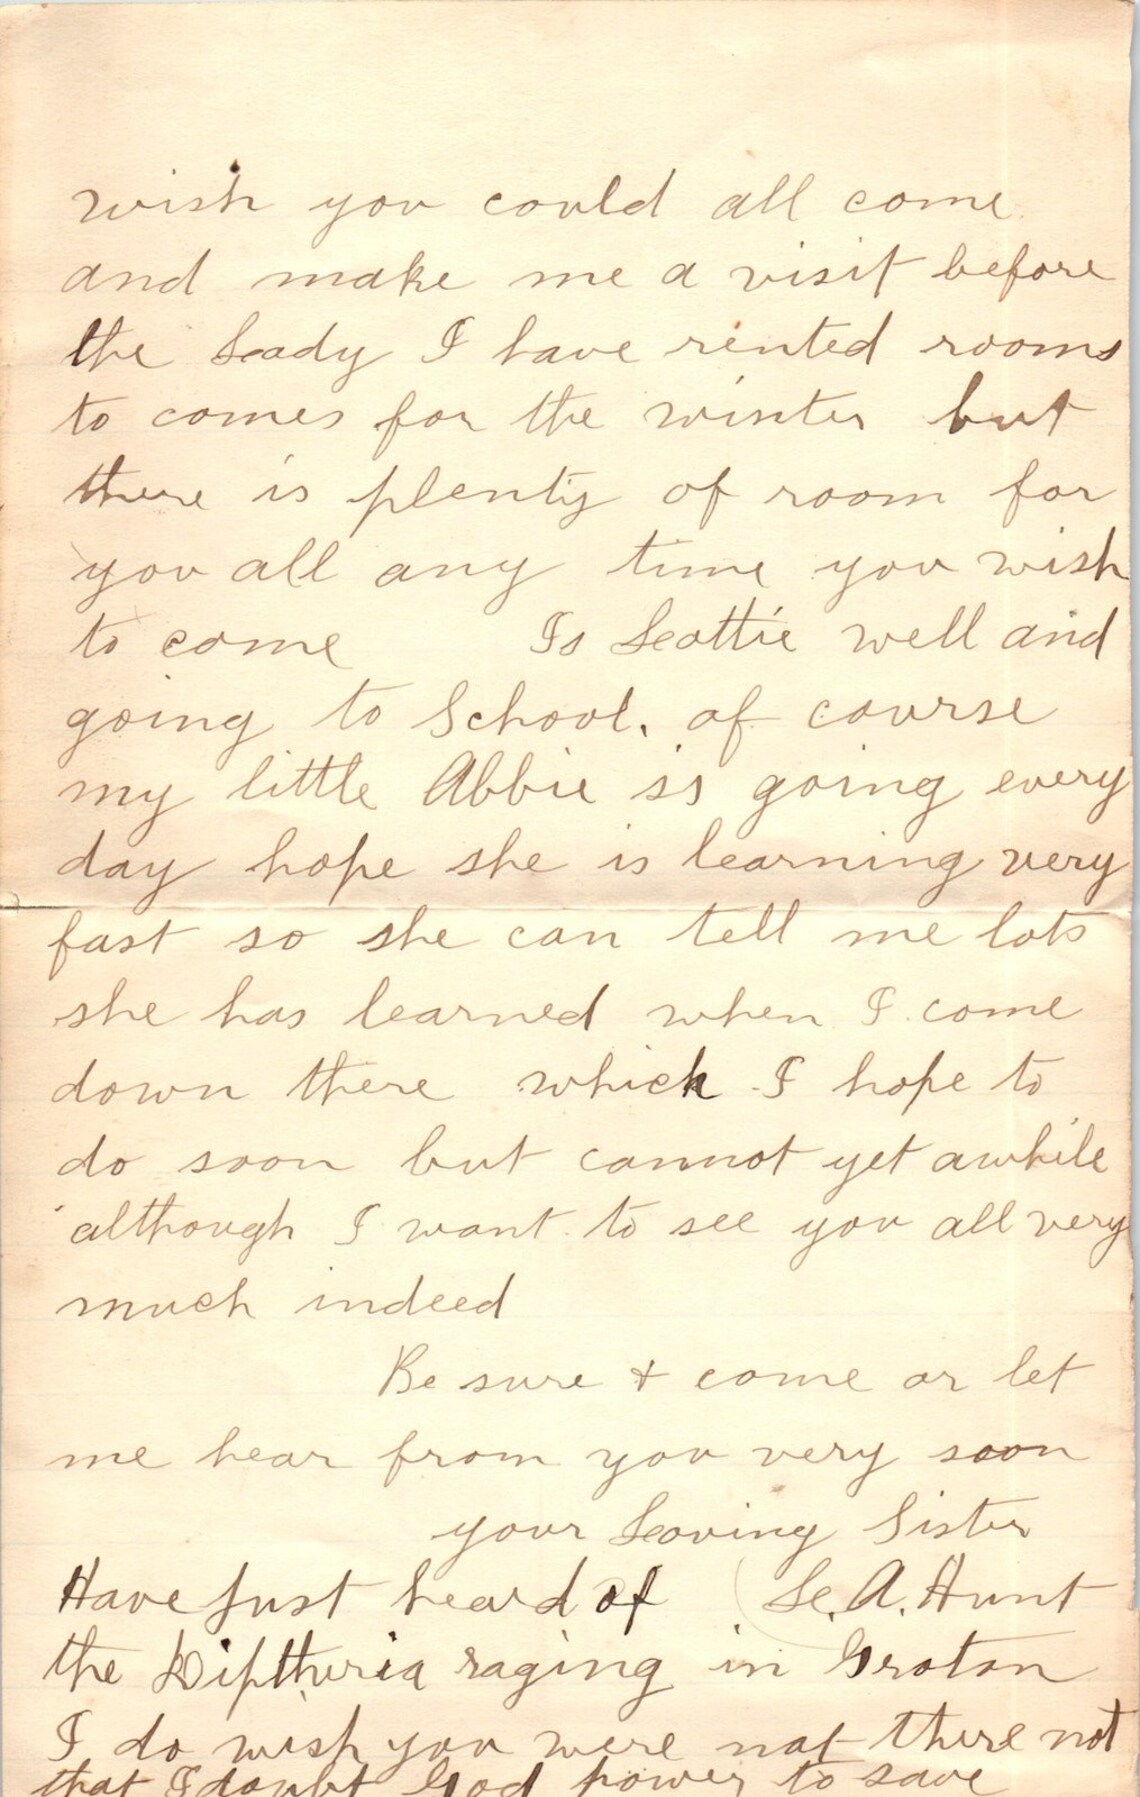 wish you could all come
and make me a visit before
the Leady I have rented rooms
to comes for the winter but
there is plenty of room for
you all any time you wish
to come Is Leottie well and
going to School. of course
my little Abbie is going every
day hope she is learning very
fast so she can tell me lots
she has learned when I come
down there which I hope to
do soon but cannot yet awhile
although I want to see you all very
much indeed
Be sure + come or let
me hear from you very soon
your Leoving Sister
Have Just heard of Le. A. Hunt
the Diptheria raging in Groton
I do wish you were not there not
that I doubt God power to save